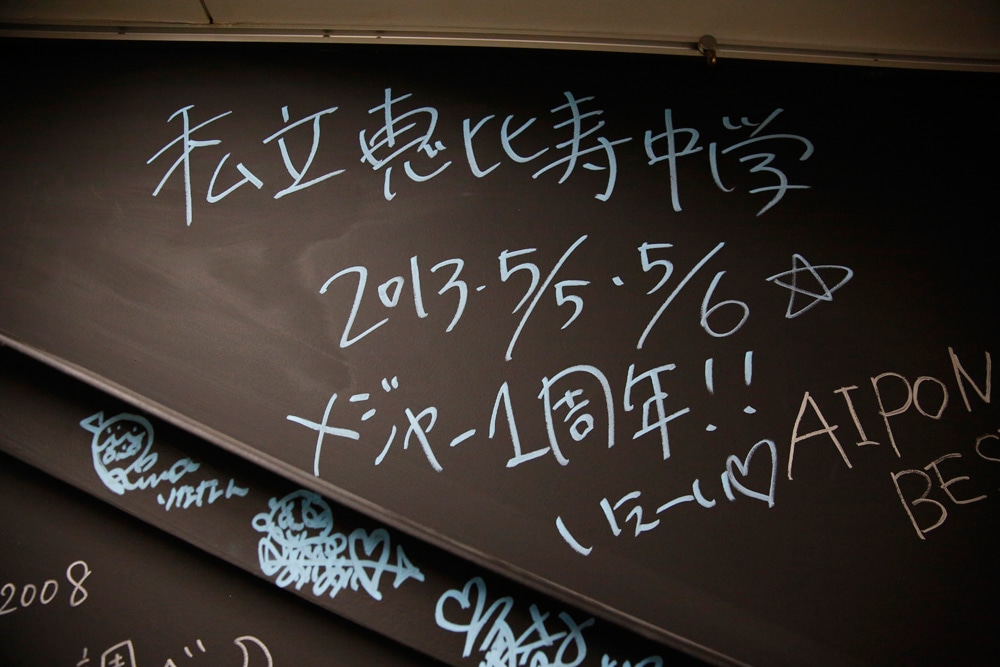 私立恵比寿中学
2013.5/5・5/6☆
メジャー1周年!!
いえーい♡
AIPON
BE
2008